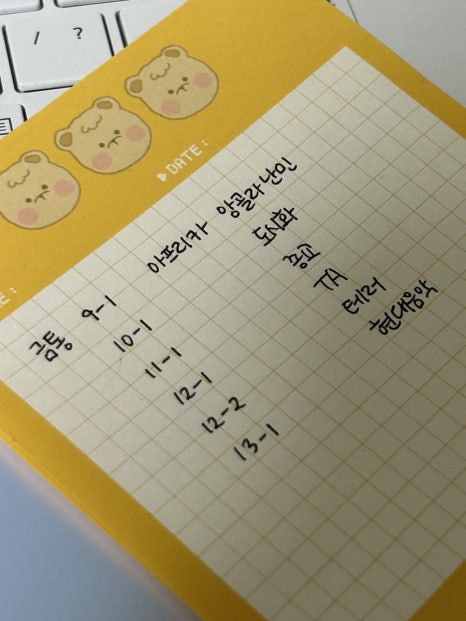 / ?
▶DATE:
E:
금통 9-1 아프리카 앙골라 난민
10-1 도시화
11-1
12-1 TA
12-2 테러
13-1 현대음악